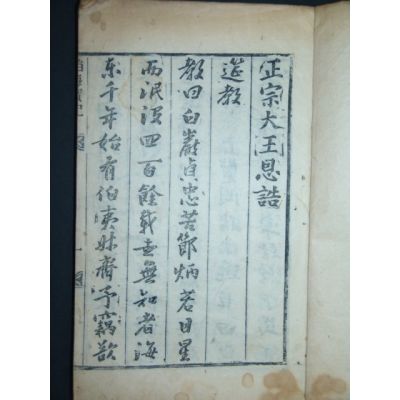 正宗大王恩誥
筵教
教曰白巖貞忠苦節炳若日星
而泯沒四百餘載世無知者海
東千年始有伯夷叔齊予竊歎